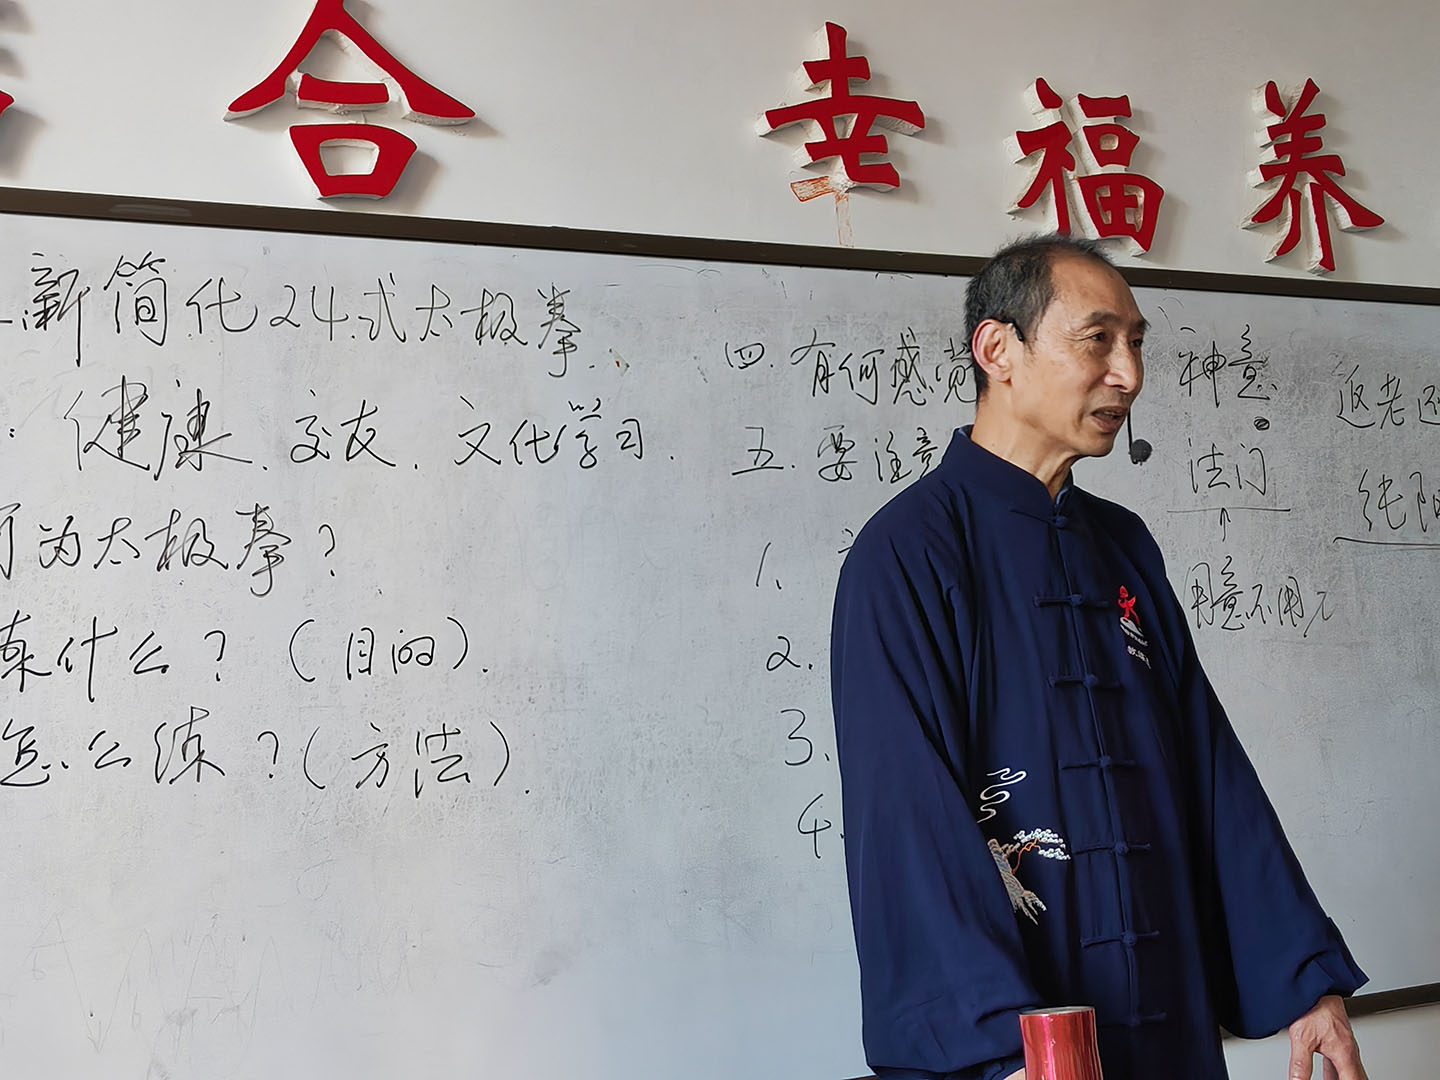 合 幸福养
新简化24式太极拳.
: 健康.交友.文化学习.
何为太极拳?
练什么?(目的).
怎么练?(方法).
四.有何感觉
五.要注意
1.
2.
3.
4.
神意.
法门
↑
用意不用
返老还
纯阳